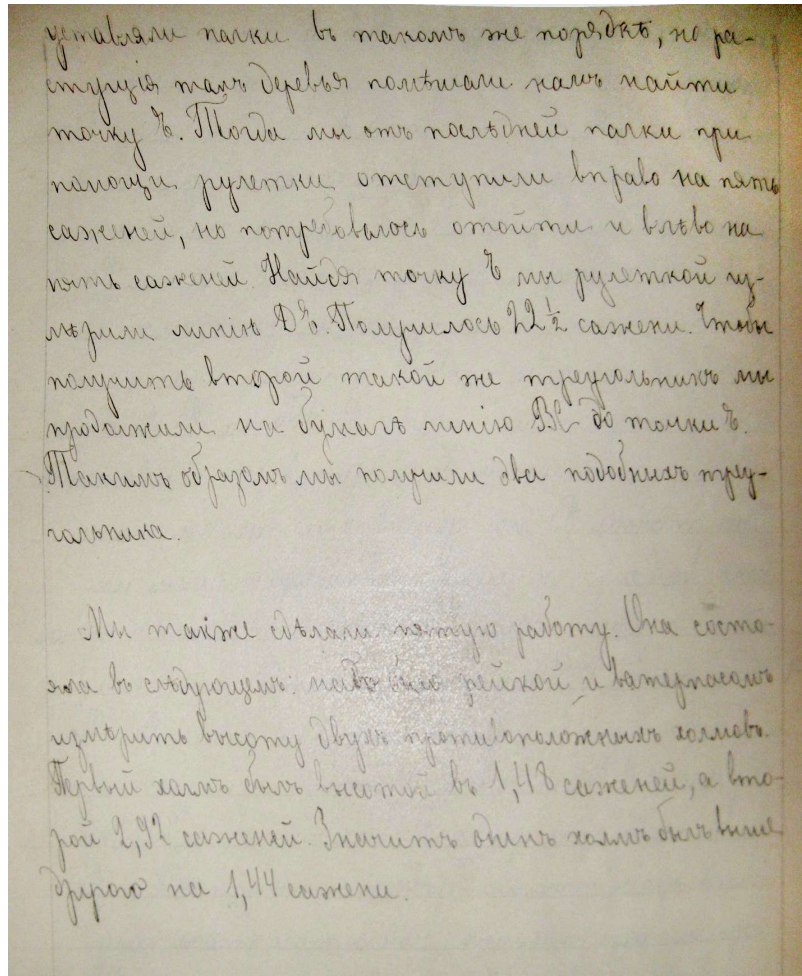 уставляли палки въ такомъ же порядкѣ, но ра-
стущія тамъ деревья помѣшали намъ найти
точку Е. Тогда мы отъ послѣдней палки при
помощи рулетки отступили вправо на пять
саженей, но потребовалось отойти и влѣво на
пять саженей. Найдя точку Е мы рулеткой из-
мѣрили линію ДЕ. Получилось 22½ сажени. Чтобы
получить второй такой же треугольникъ мы
продолжили на бумагѣ линію ВС до точки Е.
Такимъ образомъ мы получили два подобныхъ треу-
гальника.
Мы также сдѣлали пятую работу. Она состо-
яла въ слѣдующемъ: надо было рейкой и ватерпасомъ
измѣрить высоту двухъ противоположныхъ холмовъ.
Первый холмъ былъ высотой въ 1,48 саженей, а вто-
рой 2,92 саженей. Значитъ одинъ холмъ былъ выше
другого на 1,44 сажени.